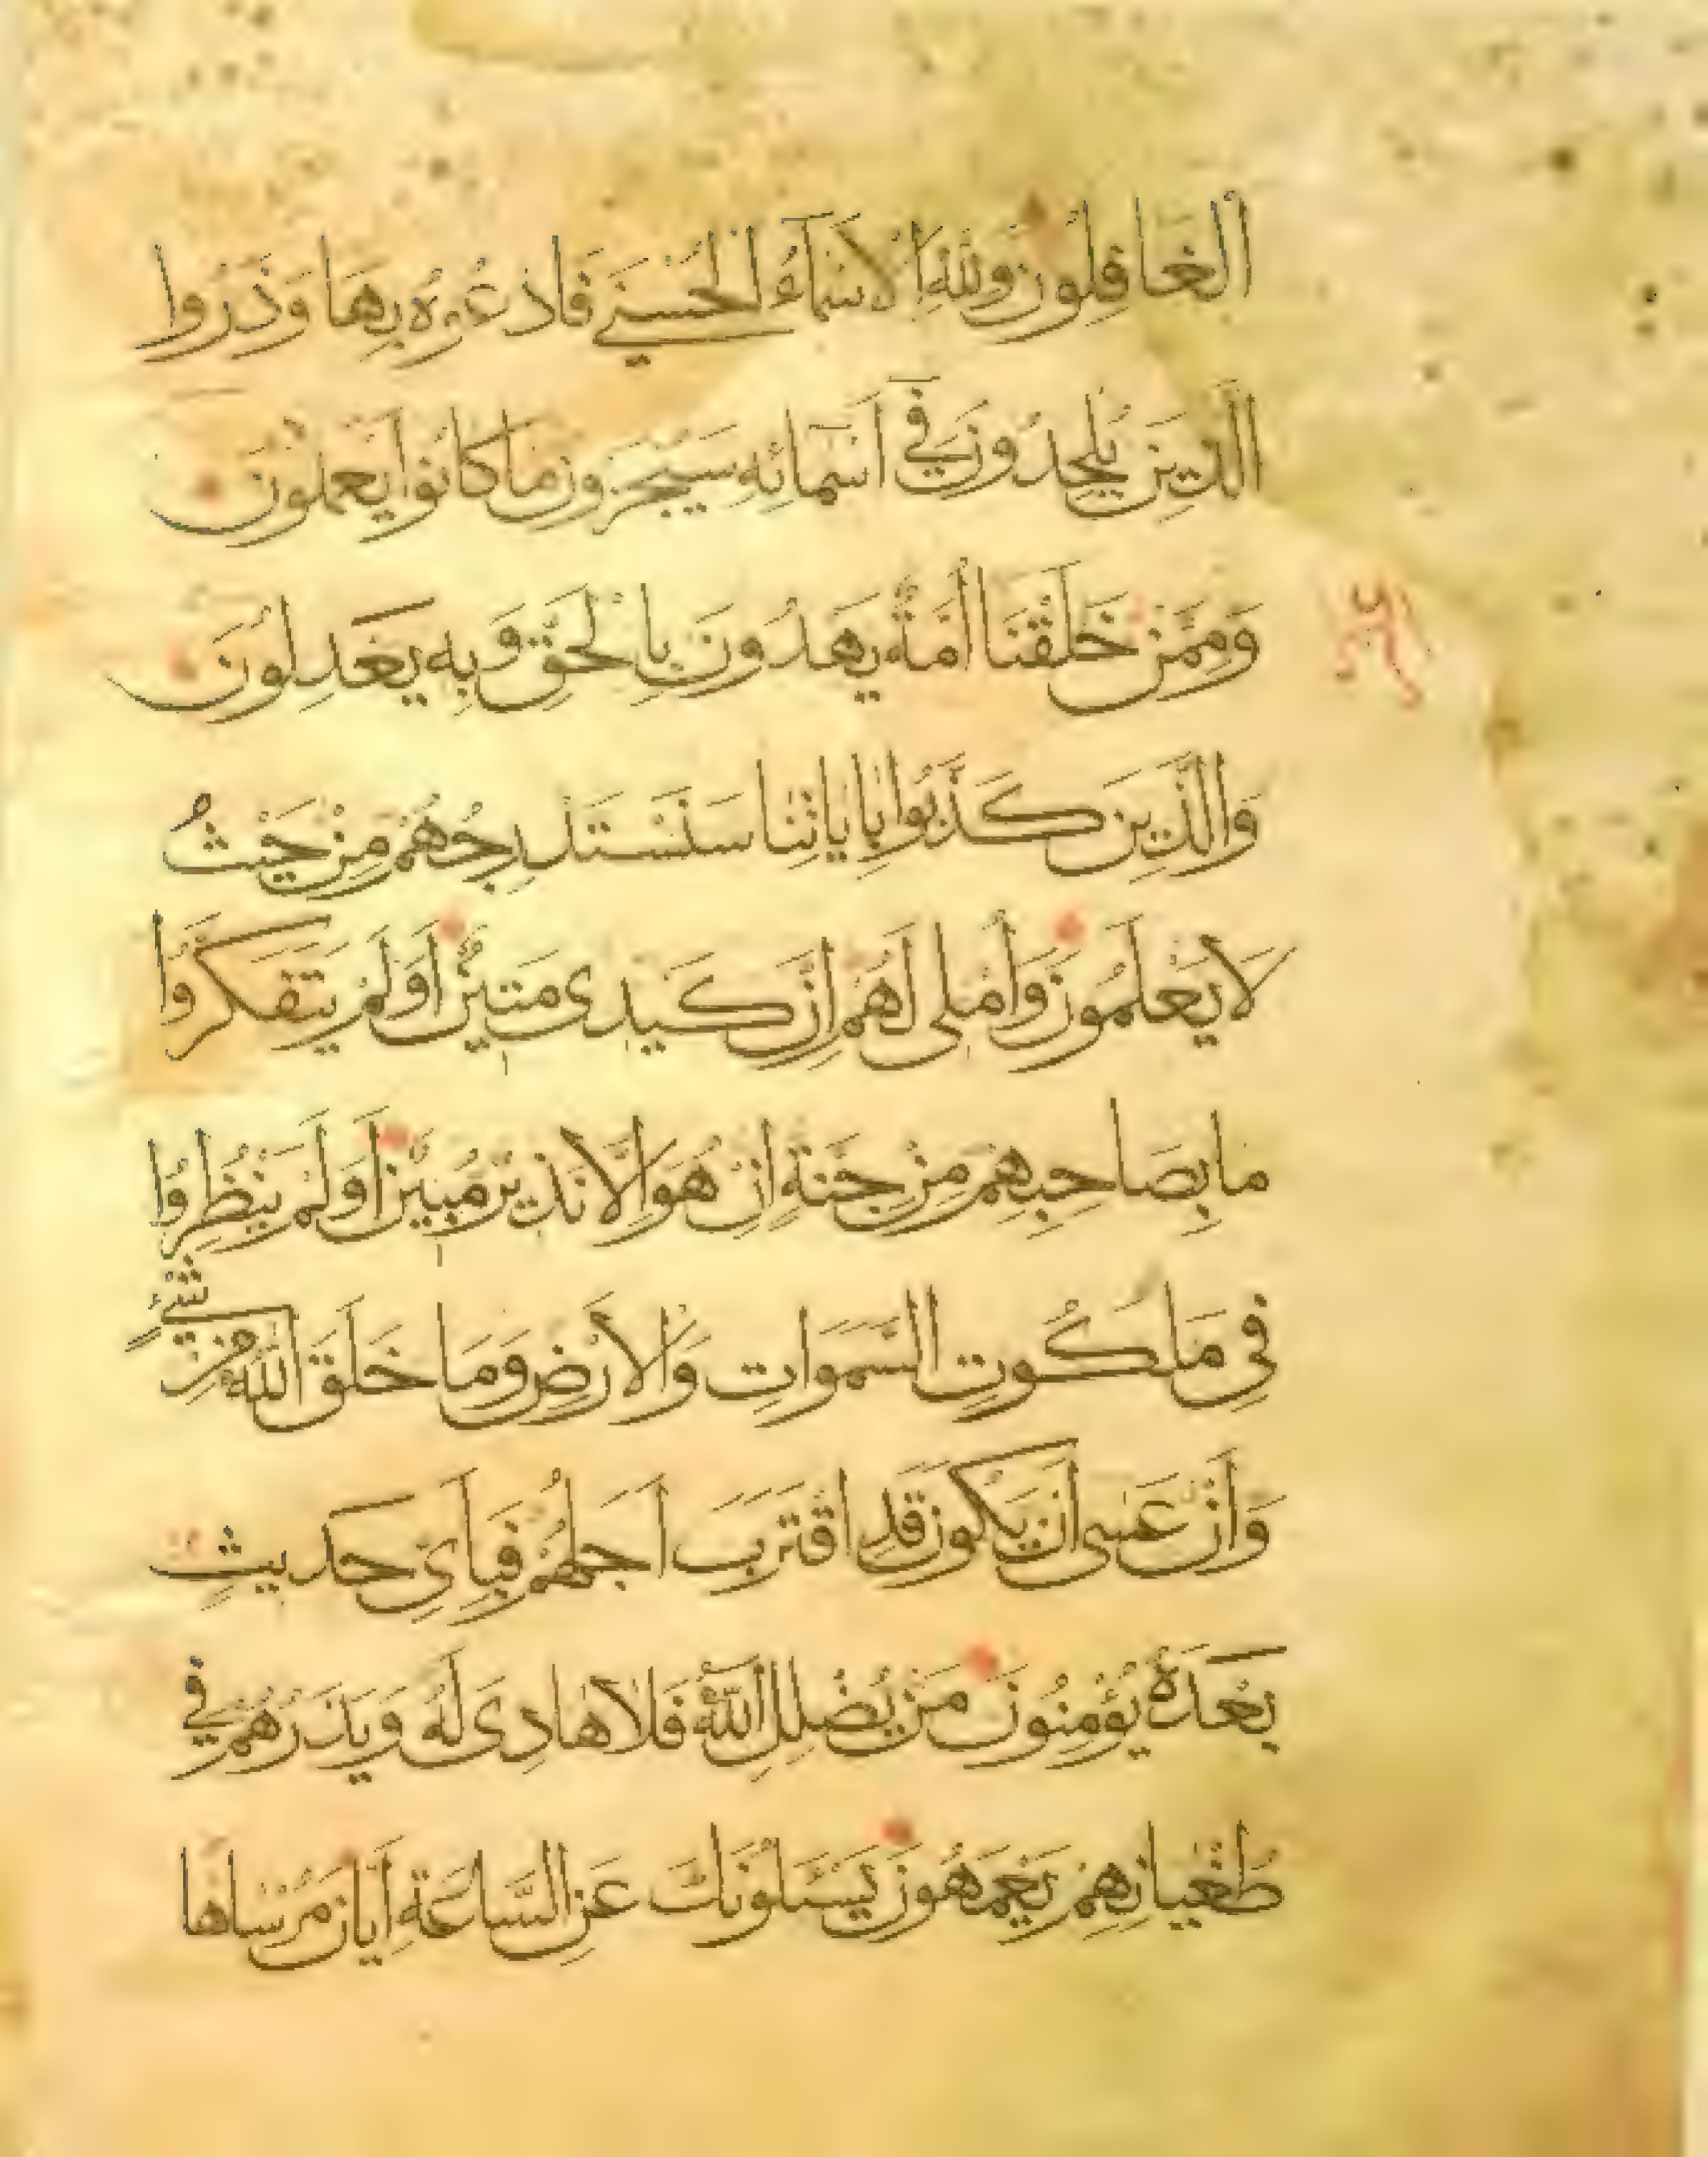 الغافلون ولله الاسماء الحسنى فادعوه بها وذروا
الذين يلحدون في اسمائه سيجزون ما كانوا يعملون
وممن خلقنا امة يهدون بالحق وبه يعدلون
والذين كذبوا باياتنا سنستدرجهم من حيث
لا يعلمون واملى لهم ان كيدى متين اولم يتفكروا
ما بصاحبهم من جنة ان هو الا نذير مبين اولم ينظروا
في ملكوت السموات والارض وما خلق الله من شيء
وان عسى ان يكون قد اقترب اجلهم فباى حديث
بعده يؤمنون من يضلل الله فلا هادى له ويذرهم في
طغيانهم يعمهون يسئلونك عن الساعة ايان مرساها